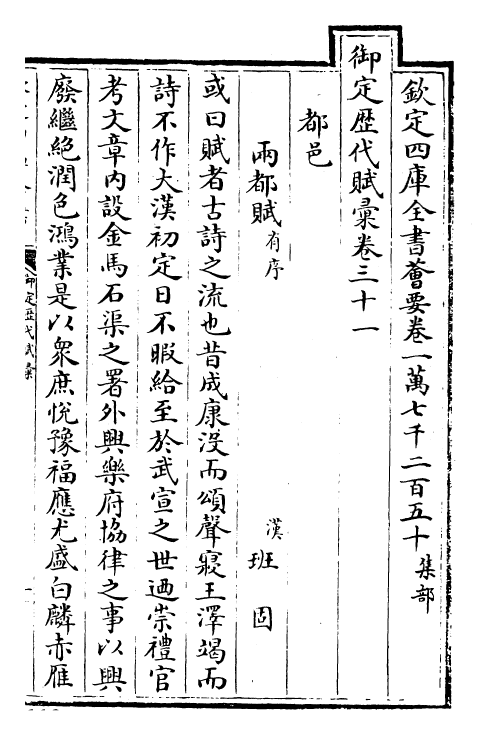 欽定四庫全書薈要卷一萬七千二百五十 集部
御定歷代賦彙卷三十一
都邑
兩都賦有序
漢 班固
或曰賦者古詩之流也昔成康没而頌聲寢王澤竭而
詩不作大漢初定日不暇給至於武宣之世迺崇禮官
考文章内設金馬石渠之署外興樂府協律之事以興
廢繼絶潤色鴻業是以衆庶悦豫福應尤盛白麟赤雁
御定歷代賦彙